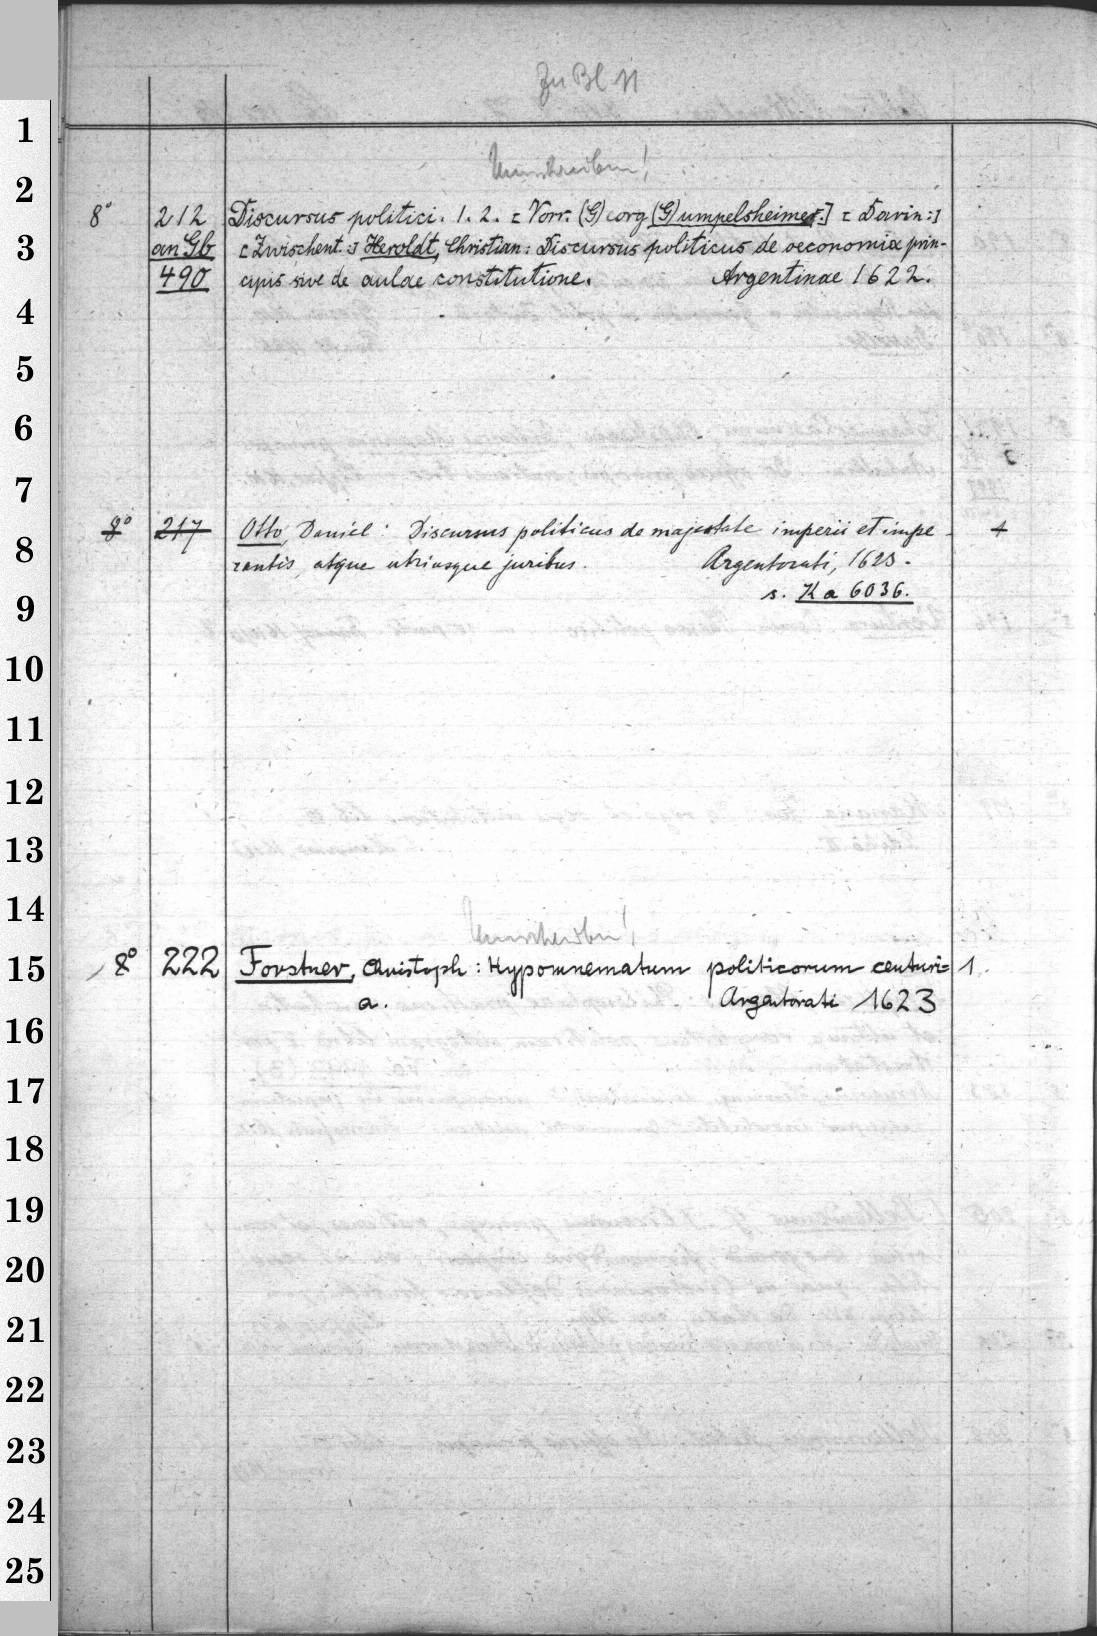 1
2
3
4
5
6
7
8
9
10
11
12
13
14
15
16
17
18
19
20
21
22
23
24
25
Zu Bl 11
Umschreiben!
8° 212 Discursus politici. 1. 2. [Vorr. (G)eorg (G)umpelsheimer.] [Darin:]
an Gb [Zwischent.:] Heroldt, Christian: Discursus politicus de oeconomia prin-
490 cipis sive de aulae constitutione. Argentinae 1622.
8° 217 Otto, Daniel: Discursus politicus de majestate imperii et impe- 1
rantis, atque utriusque juribus. Argentorati, 1623.
s. Ka 6036.
Umschreiben!
8° 222 Forstner, Christoph: Hypomnematum politicorum centuri= 1
a. Argentorati 1623